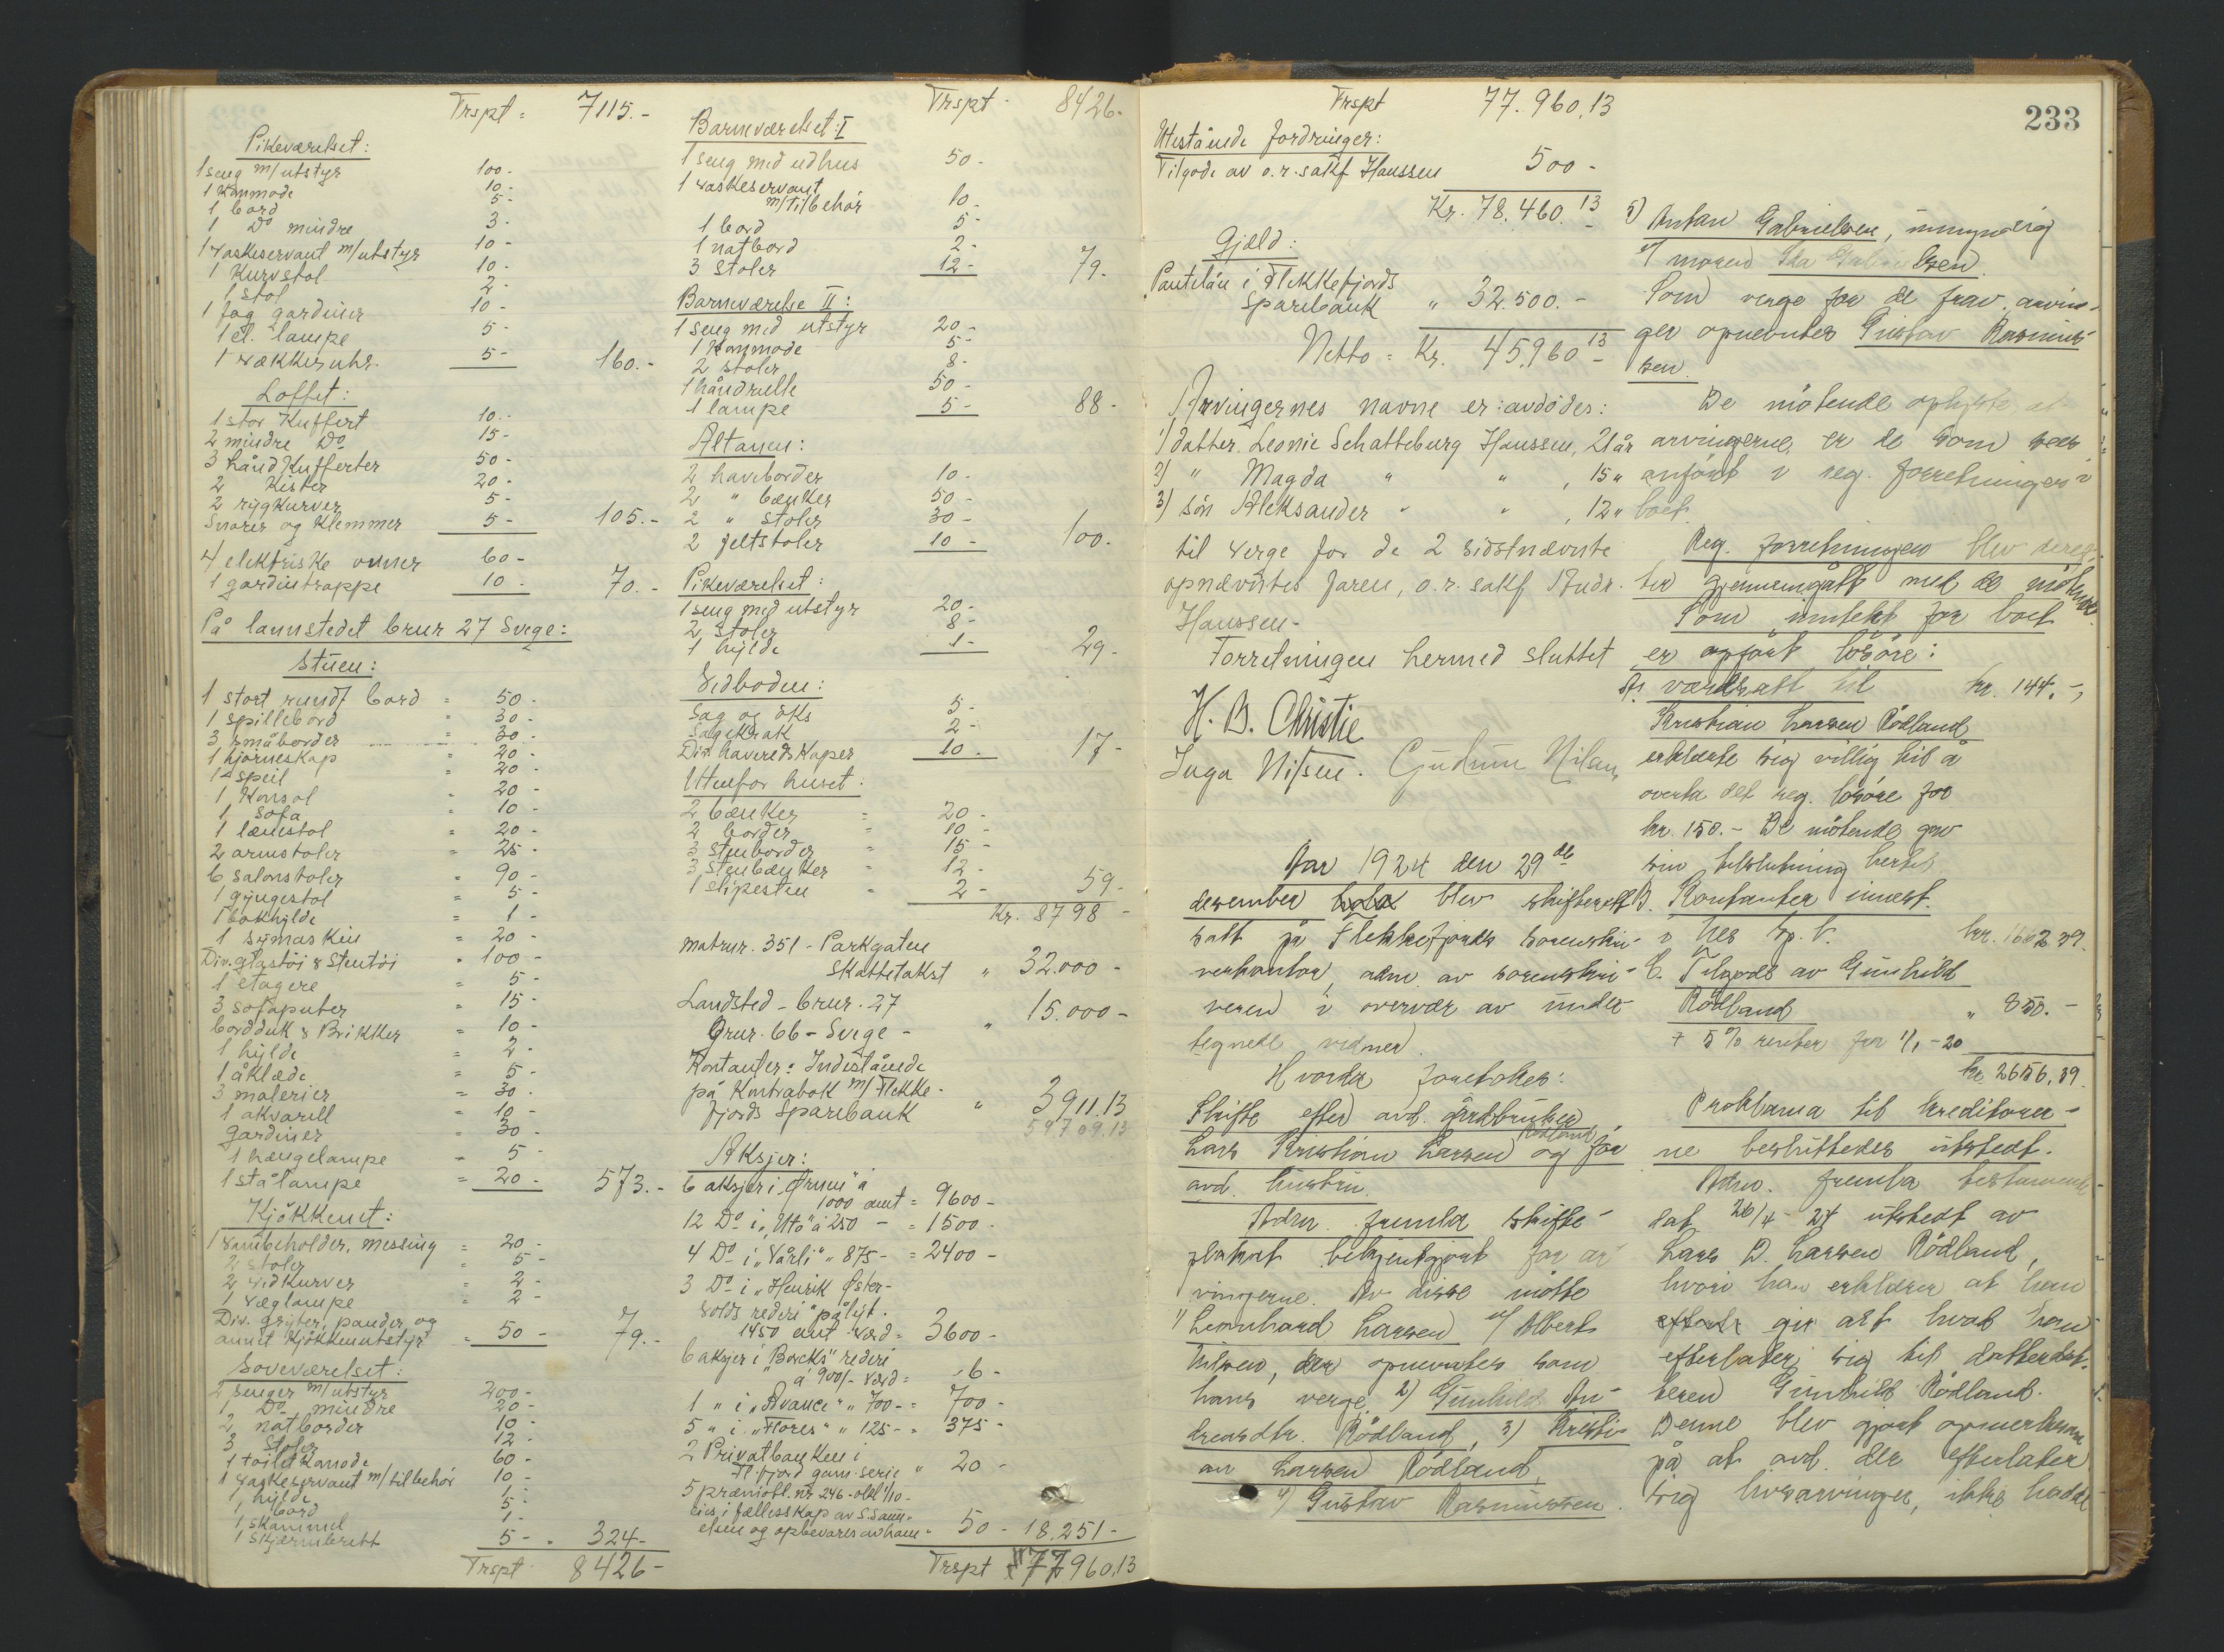 Trspt = 7115.-
Pikeværelset:
1 seng m/utstyr 100.-
1 Kommode 10.-
1 bord 5-
1 Do mindre 3-
1 vaskeservant m/utstyr 10-
1 Kurvstol 10-
1 stol 2-
1 fag gardiner 10-
1 el. lampe 5-
1 vækkeruhr. 5- 160.-
Loftet:
1 stor Kuffert 10.-
2 mindre Do 15-
3 håndkufferter 50-
2 Kister 20-
2 rygkurver 5-
Snorer og Klemmer 5- 105.-
4 elektriske ovner 60-
1 gardintrappe 10- 70.-
På lannstedet brur 27 Svege:
Stuen:
1 stort rundt bord = 50-
1 spillebord = 30-
3 småborder = 30-
1 hjørneskap = 20-
1 speil = 20-
1 Konsol = 20-
1 sofa = 10-
1 lænestol = 20-
2 armstoler = 25-
6 salonstoler = 90-
1 gyngestol = 5-
1 bokhylde = 1-
1 symaskin = 20-
Div. glastøi & Stentøi = 100-
1 etagere = 5-
3 sofaputer = 15-
bordduk & Brikker = 10-
1 hylde = 2-
1 åklæde = 5-
3 malerier = 30-
1 akvarell = 10-
gardiner = 30-
1 hængelampe = 5-
1 stålampe = 20- 573.-
Kjøkkenet:
1 vannbeholder, messing = 20-
2 stoler = 5-
2 vidkurver = 2-
1 væglampe = 2-
Div. gryter, pander og
annet kjøkkenutstyr = 50- 79.-
Soveværelset:
2 senger m/utstyr 200-
1 Do mindre 20-
2 natborder 10-
3 stoler 12-
1 toiletkomode 60-
1 vaskeservant m/tilbehør 10-
1 hylde 1-
1 bord 5-
1 skammel 1-
1 skjærmbrett 5- 324-
Trspt 8426-
Trspt - 8426-
Barneværelset: I
1 seng med udhus 50-
1 vaskeservant
m/tilbehør 10-
1 bord 5-
1 natbord 2-
3 stoler 12- 79.-
Barneværelse II:
1 seng med utstyr 20-
1 Kommode 5-
2 stoler 8-
1 håndrulle 50-
1 lampe 5- 88-
Altanen:
2 haveborder 10-
2 " bænker 50-
2 " stoler 30-
2 feltstoler 10- 100.
Pikeværelset:
1 seng med utstyr 20-
2 stoler 8-
1 hylde 1- 29-
Vedboden:
Sag og øks 5-
Sagekrak 2-
Div. haveredskaper 10- 17-
Utenfor huset:
2 bænker = 20-
2 border = 10-
3 stenborder = 15-
3 stenbænker = 12-
1 slipesten = 2- 59-
Kr. 8798-
matrnr. 351 - Parkgaten
Skattetakst " 32.000-
Landsted - brur. 27
Grur. 66 - Svege - " 15.000-
Kontanter: Indestående
på Kontrabok m/Flekke-
fjords Sparebank " 3911.13
59709.13
Aksjer:
6 aksjer i "Ørnen" á
1000 amt = 9600-
12 Do i "Utø" á 250 - = 1500-
4 Do i "Vårli" " 875- = 2400-
3 Do i "Henrik Øster-
volds rederi" pålyt.
1450 amt værd = 3600-
6 aksjer i Borcks" rederi
á 900/- værd = -6-
1 " i "Avance" " 700- = 700-
5 " i "Flores" " 125- = 375-
2 Privatbanken i
Fl.fjord gam. serie " 20-
5 præmiobl. nr 246 - obl 1/10 -
eies i fællesskap av S. Sam-
elsen og opbevares av ham = 50- 18.251-
Trspt 77960,13
233
Trspt 77.960,13
Utestående fordringer:
Tilgode av o.r.sakf Hanssen 500-
Kr. 78.460.13
Gjæld:
Pantelån i Flekkefjords
Sparebank " 32.500.-
Netto = Kr. 45.960 13
Arvingernes navne er: avdødes:
1) datter Leonie Schatteburg Hanssen, 21 år
2) " Magda " " , 15 "
3) søn Aleksander " " , 12 "
til verge for de 2 sidstnævnte
opnævntes faren, o.r. sakf Andr.
Hanssen-
Forretningen hermed sluttet
H. B. Christie
Inga Nilsen. Gudrun Nilsen
Aar 1924 den 29de
desember blev skifterett
satt på Flekkefjords sorenskri-
verkontor, adm. av sorenskri-
veren i overvær av under-
tegnede vidner.
Hvorda foretokes:
Skifte efter avd. gårdbruker
Lars Kristian Larsen Rødland og for
avd. hustru.
Adm. fremla skifte-
plakat bekjentgjort for ar-
vingerne. Av disse møtte
1) Lennhard Larsen v/ Albert
Nilsen, der opnevntes som
hans verge. 2) Gunhild An-
dreasdtr. Rødland, 3) Kristi-
an Larsen Rødland,
4) Gustav Rasmussen.
5) Anton Gabrielsen, umyndig
v/ moren
Som verge for de frav. arvin-
ger opnevntes Gustav Rasmus-
sen.
De møtende oplyste at
arvingerne er de som sees
anført i reg. forretningen i
boet.
Reg. forretningen blev deref-
ter gjennemgått med de møtende.
Som inntekt for boet
er opført løsøre:
A. værdsatt til kr. 144.-,
Kristian Larsen Rødland
erklærte sig villig til å
overta det reg. løsøre for
kr. 150.- De møtende gav
sin tilslutning hertil
B. Kontanter innest.
i Hes Sp. b. kr. 1662 39.
C. Tilgode av Gunhild
Rødland " 850.-
+ 5% renter fra 1/1 -20
kr. 2656,39.
Proklama til kreditorer-
ne besluttedes utstedt.
Adm. fremla testamente
dat 26/4 - 24 utstedt av
Lars D. Larsen Rødland,
hvori han erklærer at han
gir alt hvad han
efterlater sig til datterdat-
teren Gunhild Rødland.
Denne blev gjort opmerksom
på at avd. der efterlater
sig livsarvinger, ikke hadde